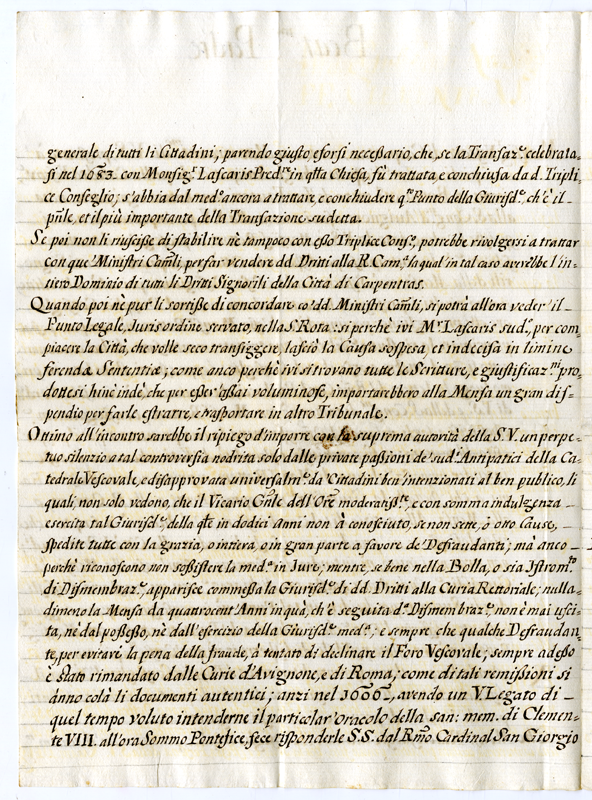 generale di tutti li Cittadini; parendo giusto, e forsi necessario, che, se la Transaz.e celebrata-
si nel 1683. con Monsig.r Lascaris Pred.re in qsta Chiesa, fù trattata, e conchiusa da d. Tripli-
ce Conseglio; s'abbia dal med.o ancora a trattare, e conchiudere q.o Punto della Giurisd.e ch'è il-
p̃ñle, et il più importante della Transazione sudetta.
Se poi non li riuscisse di stabilire nè tampoco con esso Triplice Cons.o, potrebbe rivolgersi a trattar
con que' Ministri Cam̃li, per far vendere dd. Dritti alla R. Cam.a la qual'in tal caso averebbe l'in-
tiero Dominio di tutti li Dritti Signorili della Città di Carpentras.
Quando poi nè pur li sortisse di concordare co' dd. Ministri Cam̃li, si potrà all'ora veder' il-
Punto Legale, Juris ordine servato, nella S. Rota: si perchè ivi M.r Lascaris sud.o, per com-
piacere la Città, che volle seco transiggere, lasciò la Causa sospesa, et indecisa in limine
ferendæ Sententiæ; come anco perchè ivi si trovano tutte le Scritture, e giustificaz.ni pro-
dottesi hinc indè, che per esser'assai voluminose, importarebbero alla Mensa un gran dis-
pendio per farle estrarre, e trasportare in altro Tribunale.
Ottimo all'incontro sarebbe il ripiego d'imporre con la suprema autorità della S.V. un perpe-
tuo silenzio a tal controversia nodrita solo dalle private passioni de' sud.i Antipatici della Ca-
tedrale Vescovale, e disapprovata universalm.e da' Cittadini ben' intenzionati al ben publico, li
quali, non solo vedono, che il Vicario Gñle dell'Ore moderatiss.e, e con somma indulgenza
esercita tal Giurisd.e, della qle in dodici anni non à conosciuto, se non sette, ò otto Cause,
spedite tutte con la grazia, o intiera, o in gran parte a favore de' Defraudanti; mà anco-
perchè riconoscono non sossistere la med.a in Jure; mentre, se bene nella Bolla, o sia Istrom.to
di Dismembraz.e, apparisce commessa la Giurisd.e di dd. Dritti alla Curia Rettoriale; nulla-
dimeno la Mensa da quattrocent'Anni in quà, ch'è seguita d.a Dismembraz.e, non è mai usci-
ta, nè dal possesso, nè dall'esercizio della Giurisd.e med.a; e sempre che qualche Defraudan-
te, per evitare la pena della fraude, à tentato di declinare il Foro Vescovale; sempre adesso
è stato rimandato dalle Curie d'Avignone, e di Roma; come di tali remissioni si
ànno colà li documenti autentici; anzi nel 1606, avendo un V. Legato di
quel tempo voluto intenderne il particolar'oracolo della san: mem. di Clemen-
te VIII. all'ora Sommo Pontefice, fece risponderle S.S. dal Rm̃o Cardinal San Giorgio